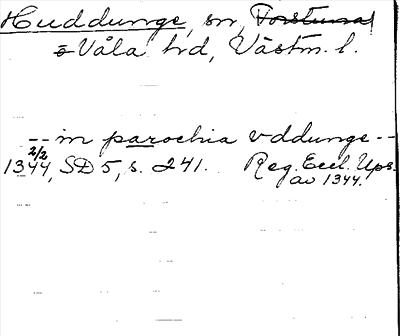 Huddunge, sn, Torstuna
ō Våla hd, Västm. l.
-- in parochia vddunge --
2/2
1344, SD 5, s. 241. Reg. Eccl. Ups.
av 1344.